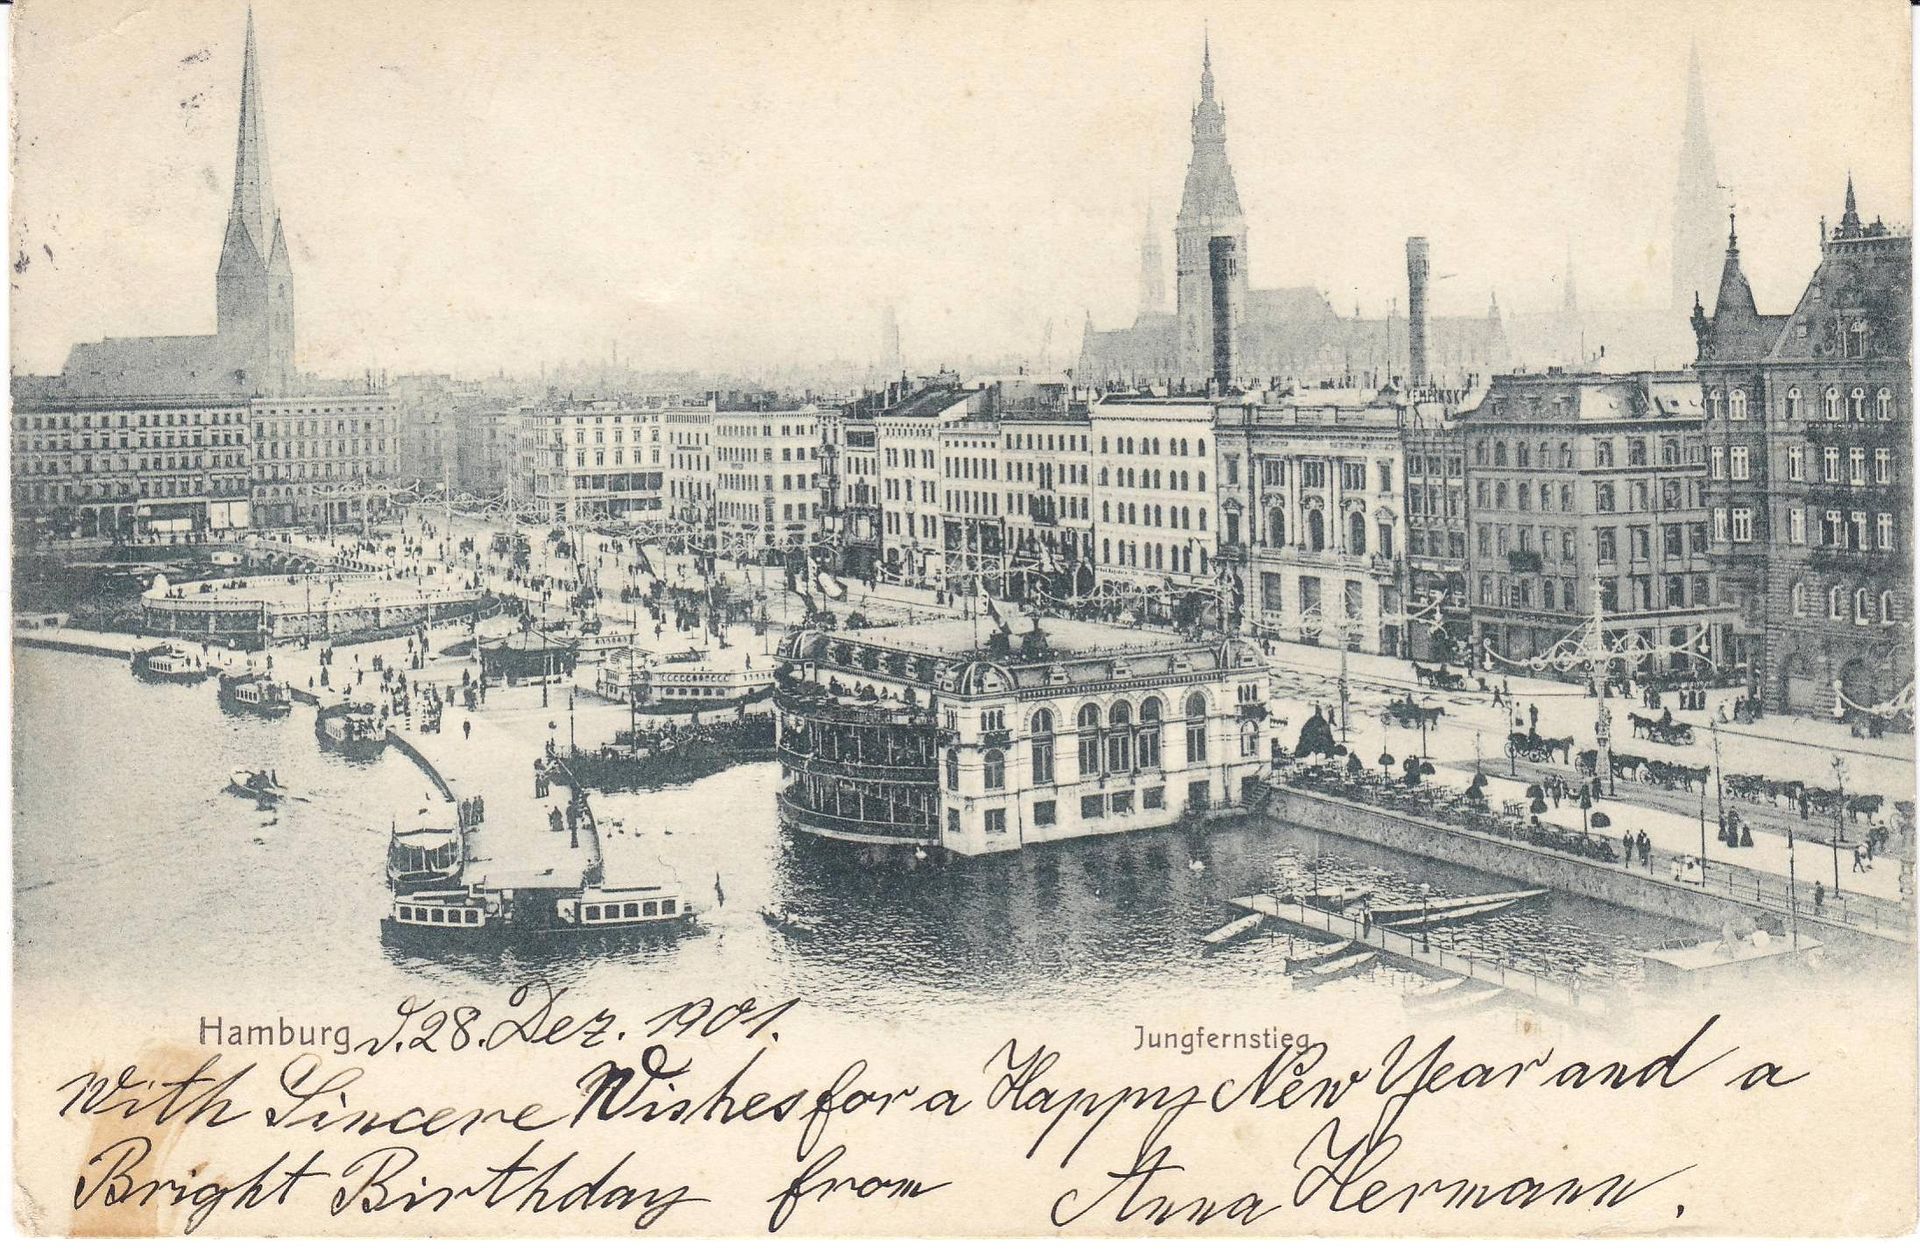 KEMPINSKI
Hamburg d. 28. Dez. 1901.
Jungfernstieg
With Sincere Wishes for a Happy New Year and a
Bright Birthday from Anna Hermann.